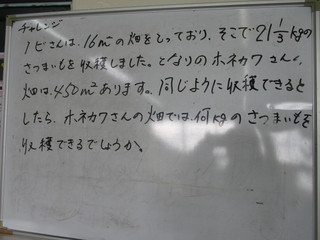 チャレンジ
ノビさんは、16m²の畑をもっており、そこで21 1/3 kgの
さつまいもを収穫しました。となりのホネカワさんの
畑は450m²あります。同じように収穫できると
したら、ホネカワさんの畑では、何kgのさつまいもを
収穫できるでしょうか。